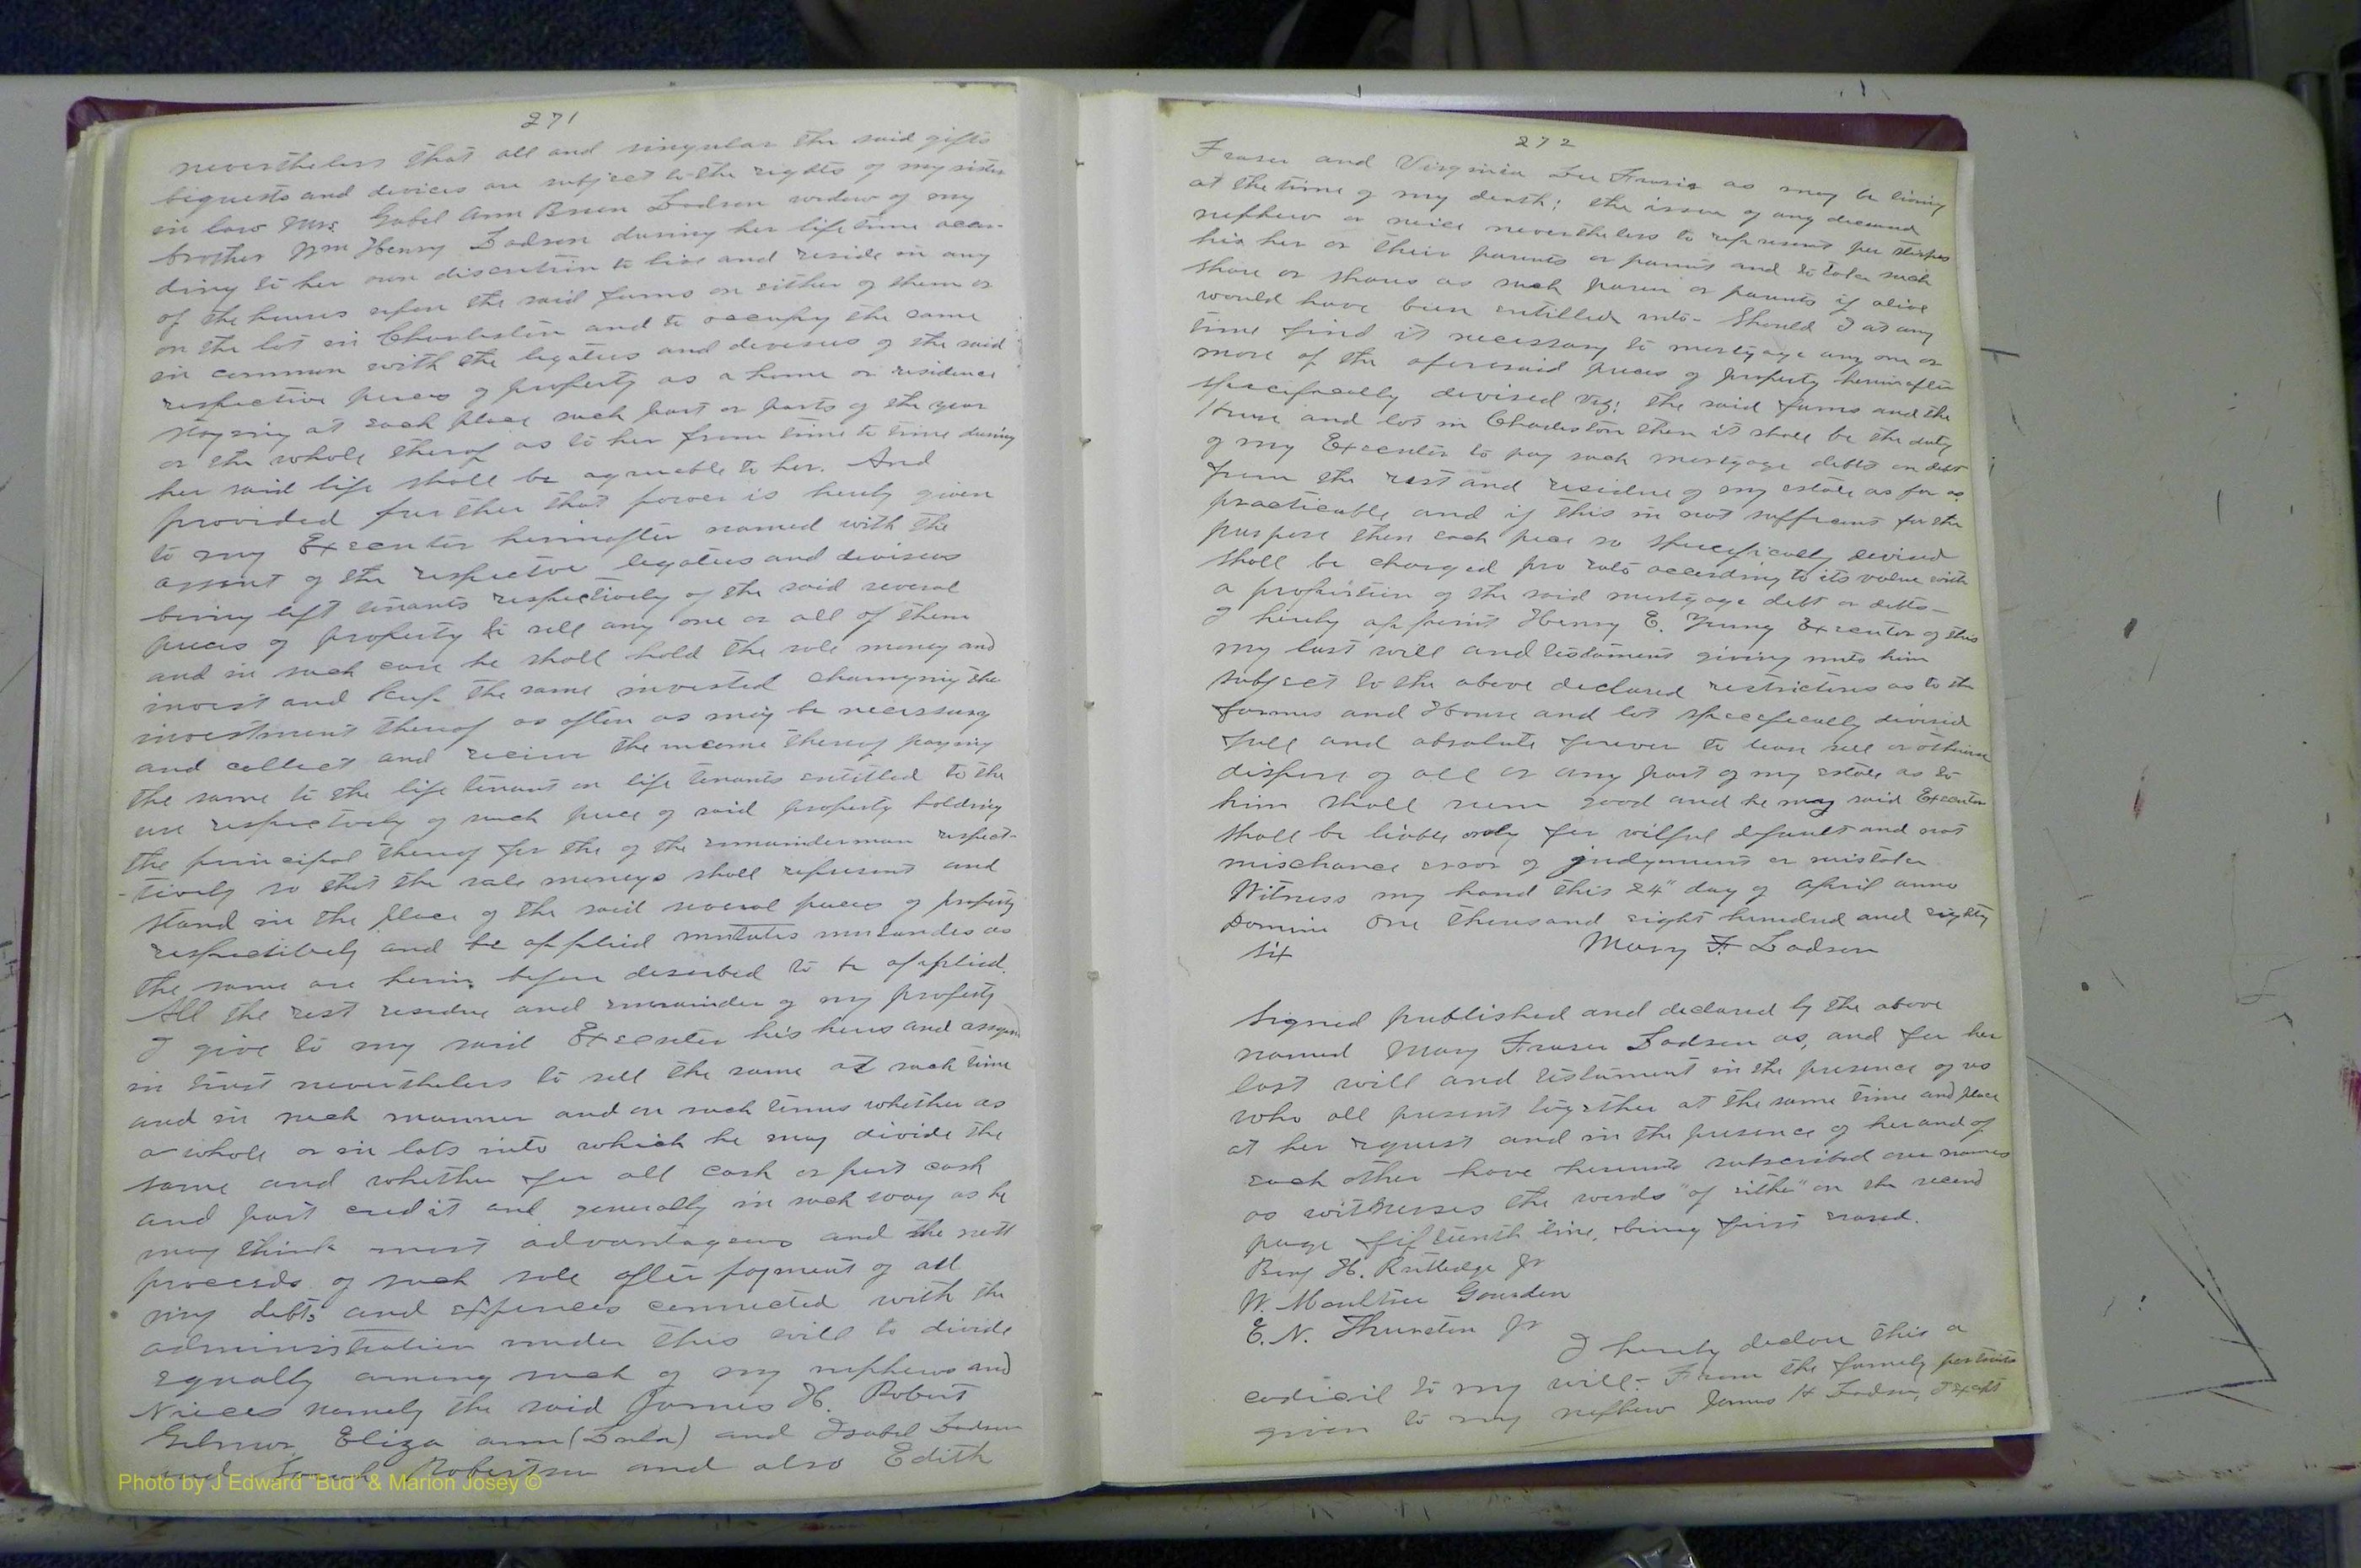 271
nevertheless that all and singular the said gifts
bequests and devices are subject to the rights of my sister
in law Mrs. Isabel Ann Buen Ladson widow of my
brother Wm Henry Ladson during her life time accor-
ding to her own discretion to live and reside in any
of the houses upon the said farms or either of them or
on the lot in Charleston and to occupy the same
in common with the legatees and devisees of the said
respective pieces of property as a home or residence
staying at each place such part or parts of the year
or the whole thereof as to her from time to time during
her said life shall be agreeable to her. And
provided further that power is hereby given
to my Executor hereinafter named with the
assent of the respective legatees and devisees
being life tenants respectively of the said several
pieces of property to sell any one or all of them
and in such case he shall hold the sale money and
invest and keep the same invested changing the
investment thereof as often as may be necessary
and collect and receive the income thereof paying
the same to the life tenant or life tenants entitled to the
use respectively of such piece of said property holding
the principal thereof for the of the remainderman respect-
-tively so that the sale moneys shall represent and
stand in the place of the said several pieces of property
respectively and be applied mutatis mutandes as
the same are herein before described to be applied.
All the rest residue and remainder of my property
I give to my said Executor his heirs and assigns
in trust nevertheless to sell the same at such time
and in such manner and on such terms whether as
a whole or in lots into which he may divide the
same and whether for all cash or part cash
and part credit and generally in such way as he
may think most advantageous and the nett
proceeds of such sale after payment of all
my debts and expences connected with the
administration under this will to divide
equally among such of my nephews and
Nieces namely the said James H. Robert
Gilmor, Eliza ann (Lula) and Isabel Ladson
and Sarah Robertson and also Edith
272
Fraser and Virginia Lee Frasier as may be living
at the time of my death; the issue of any deceased
nephew or neice nevertheless to represent per stirpes
his her or their parents or parent and to take such
share or shares as such parent or parents if alive
would have been entitled unto - Should I at any
time find it necessary to mortgage any one or
more of the aforesaid pieces of property hereinafter
specifically devised viz: the said farms and the
House and lot in Charleston then it shall be the duty
of my Executor to pay such mortgage debts or debt
from the rest and residue of my estate as far as
practicable and if this is not sufficient for the
purpose then each piece so specifically devised
shall be charged pro rata according to its value with
a proportion of the said mortgage debt or debts -
I hereby appoint Henry E. Young Executor of this
my last will and testament giving unto him
subject to the above declared restrictions as to the
farms and House and lot specifically devised
full and absolute power to lease sell or otherwise
dispose of all or any part of my estate as to
him shall seem good and he my said Executor
shall be liable only for wilful default and not
mischance error of judgement or mistake
Witness my hand this 24" day of April anno
Domini One thousand eight hundred and eighty
six Mary F. Ladson
Signed published and declared by the above
named Mary Fraser Ladson as, and for her
last will and testament in the presence of us
who all present together at the same time and place
at her request and in the presence of her and of
each other have hereunto subscribed our names
as witnesses the words "of either" on the second
page fifteenth line, being first erased.
Benj H. Rutledge Jr
W. Moultrie Gourdin
E. N. Thurston Jr
I hereby declare this a
codicil to my will: From the family portraits
given to my nephew James H Ladson, I except
Photo by J Edward "Bud" & Marion Josey ©